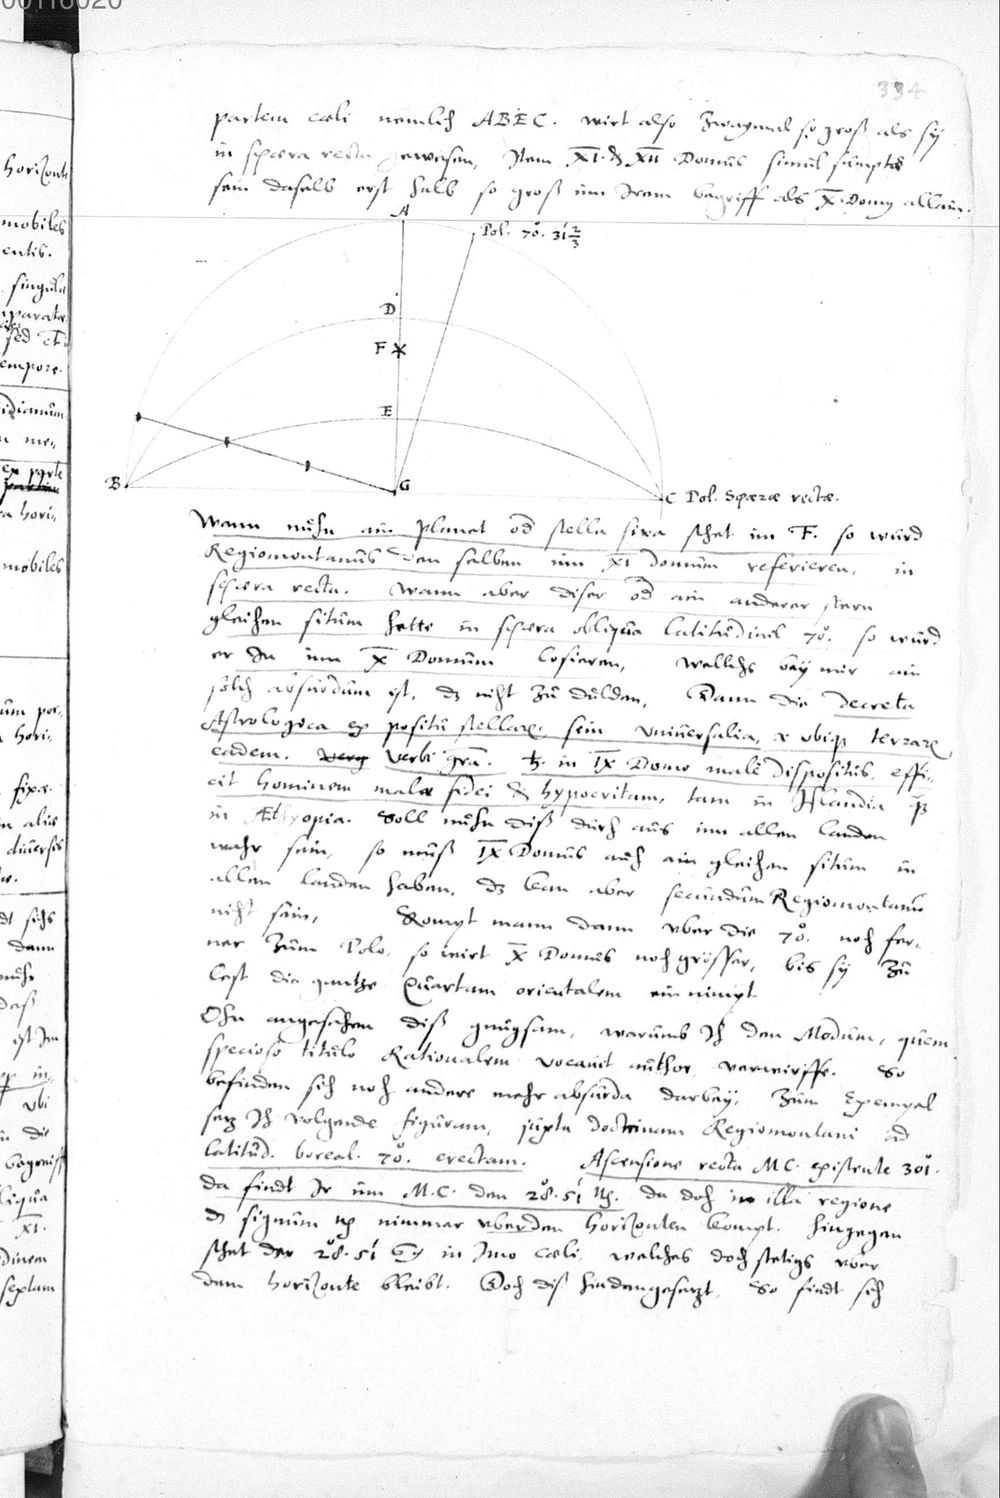 00116020
334
partem cœli nemlich ABEC. wirt also zwaymal so groß als sy
in sphæra recta gewesen, Item XI. & XII Domus simul sumptæ
sein daselb erst halb so groß im Irem begriff als X. Domus allain.
A
Pol. 70°. 31' 2/3
D
F
E
B
G
C Pol. Spæræ rectæ.
Wann nuhn ain planet od stella fixa sthet im F. so würd
Regiomontanus den selben im XI domum referieren, in
sphæra recta. Wann aber diser od ain anderer stern
gleichen situm hette in sphæra obliqua latitudinis 70°. so würd
er In im X Domum losieren, wellichs bey mir ain
solch absurdum ist, dz nicht zu dulden, Dann die decreta
Astrologica ex positu stellarum sein universalia, & ubique terrarum
eadem. verg verbi gra. ♄. in IX Domo male dispositus, effi-
cit hominem malæ fidei & hypocritam, tam in Islandia quam
in Æthyopia. Soll nuhn diß durch aus inn allen landen
wahr sein, so muß IX Domus auch ain gleichen situm in
allen landen haben, dz kan aber secundum Regiomontanum
nicht sein, Kompt mann dann uber die 70°. noch fer-
ner zum Polo, so wirt X Domus noch grösser, bis sy zu
lest die gantze Quartam orientalem ein nimpt
Ohn angesehen diß gnugsam, warumb Ich den Modum, quem
specioso titulo Rationalem vocavit author verwirffe. So
befinden sich noch andere mehr absurda darbey, Zum Exempel
setz Ich volgende figuram, juxta doctrinam Regiomontani ad
latitud. boreal. 70°. erectam. Ascensione recta M.C. existente 301°.
da findt Ir im M.C. den 28°. 51' ♑. da doch in illa regione
dz signum ♑ nimmer uber den Horizonten kompt. hingegen
sthet der 28°. 51' ♋ in Imo cœli, welches doch stetigs uber
dem horizonte bleibt. Doch diß hindangesetzt, So findt sich
horizonte
mobiles
entis.
singula
parata
sed et
tempore.
idianum
ex parte
hori-
mobiles
um por-
hori-
fixæ.
in alia
diversis
dt sichs
dann
ist Im
in
ubi
in die
begriff
liqua
XI.
dinem
septam